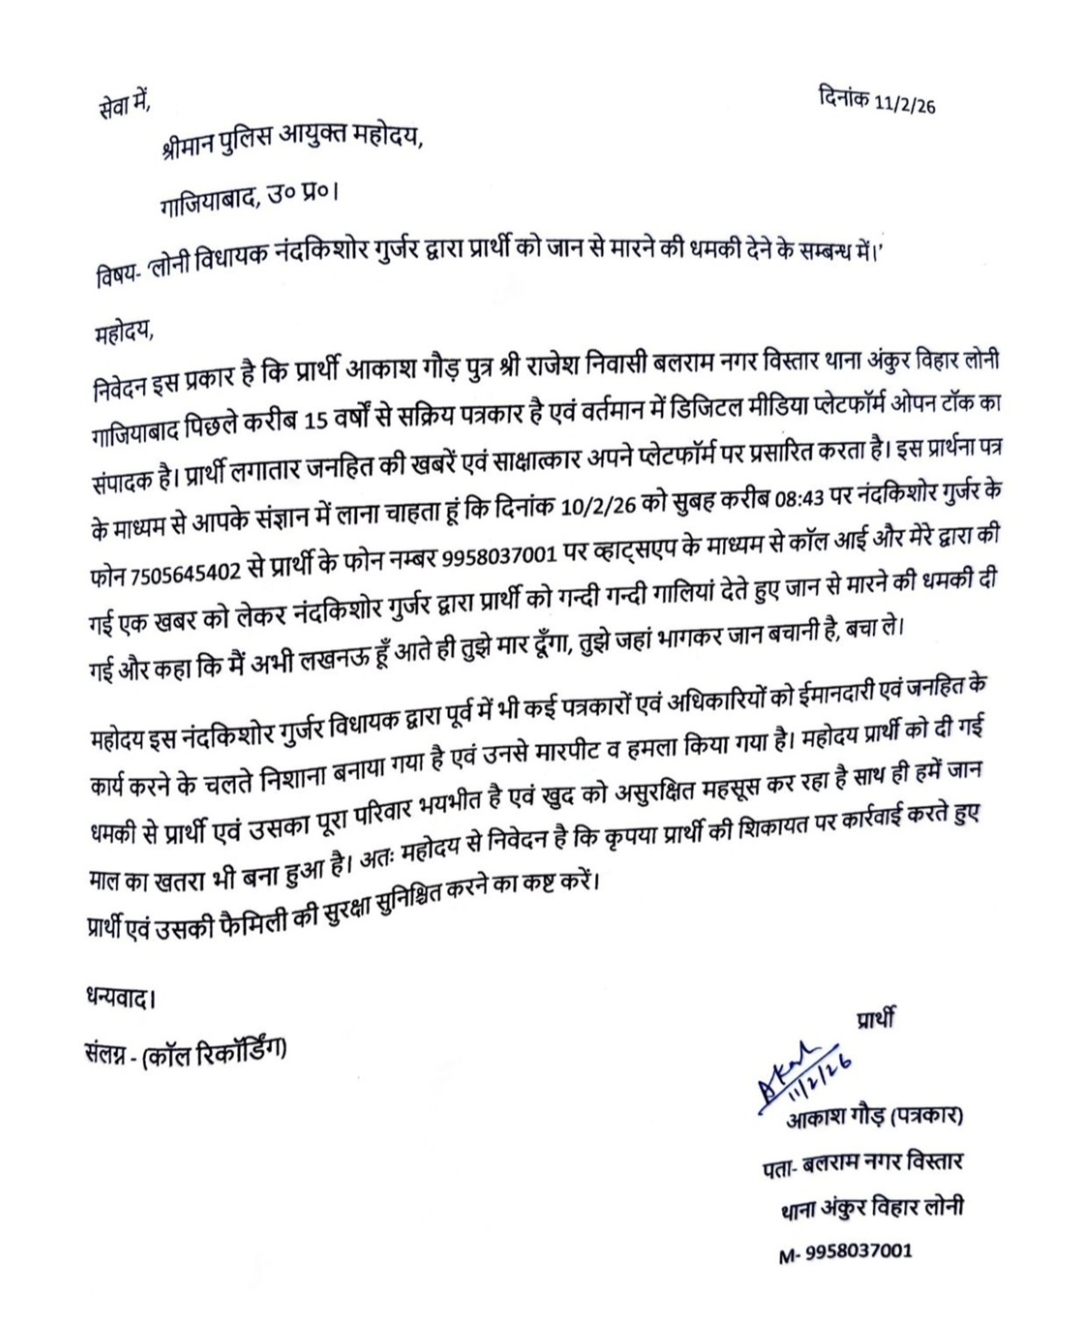 सेवा में,
दिनांक 11/2/26
श्रीमान पुलिस आयुक्त महोदय,
गाजियाबाद, उ० प्र०।
विषय- 'लोनी विधायक नंदकिशोर गुर्जर द्वारा प्रार्थी को जान से मारने की धमकी देने के सम्बन्ध में।'
महोदय,
निवेदन इस प्रकार है कि प्रार्थी आकाश गौड़ पुत्र श्री राजेश निवासी बलराम नगर विस्तार थाना अंकुर विहार लोनी
गाजियाबाद पिछले करीब 15 वर्षों से सक्रिय पत्रकार है एवं वर्तमान में डिजिटल मीडिया प्लेटफॉर्म ओपन टॉक का
संपादक है। प्रार्थी लगातार जनहित की खबरें एवं साक्षात्कार अपने प्लेटफॉर्म पर प्रसारित करता है। इस प्रार्थना पत्र
के माध्यम से आपके संज्ञान में लाना चाहता हूं कि दिनांक 10/2/26 को सुबह करीब 08:43 पर नंदकिशोर गुर्जर के
फोन 7505645402 से प्रार्थी के फोन नम्बर 9958037001 पर व्हाट्सएप के माध्यम से कॉल आई और मेरे द्वारा की
गई एक खबर को लेकर नंदकिशोर गुर्जर द्वारा प्रार्थी को गन्दी गन्दी गालियां देते हुए जान से मारने की धमकी दी
गई और कहा कि मैं अभी लखनऊ हूँ आते ही तुझे मार दूँगा, तुझे जहां भागकर जान बचानी है, बचा ले।
महोदय इस नंदकिशोर गुर्जर विधायक द्वारा पूर्व में भी कई पत्रकारों एवं अधिकारियों को ईमानदारी एवं जनहित के
कार्य करने के चलते निशाना बनाया गया है एवं उनसे मारपीट व हमला किया गया है। महोदय प्रार्थी को दी गई
धमकी से प्रार्थी एवं उसका पूरा परिवार भयभीत है एवं खुद को असुरक्षित महसूस कर रहा है साथ ही हमें जान
माल का खतरा भी बना हुआ है। अतः महोदय से निवेदन है कि कृपया प्रार्थी की शिकायत पर कार्रवाई करते हुए
प्रार्थी एवं उसकी फैमिली की सुरक्षा सुनिश्चित करने का कष्ट करें।
धन्यवाद।
संलग्न - (कॉल रिकॉर्डिंग)
प्रार्थी
Akash
11/2/26
आकाश गौड़ (पत्रकार)
पता- बलराम नगर विस्तार
थाना अंकुर विहार लोनी
M- 9958037001